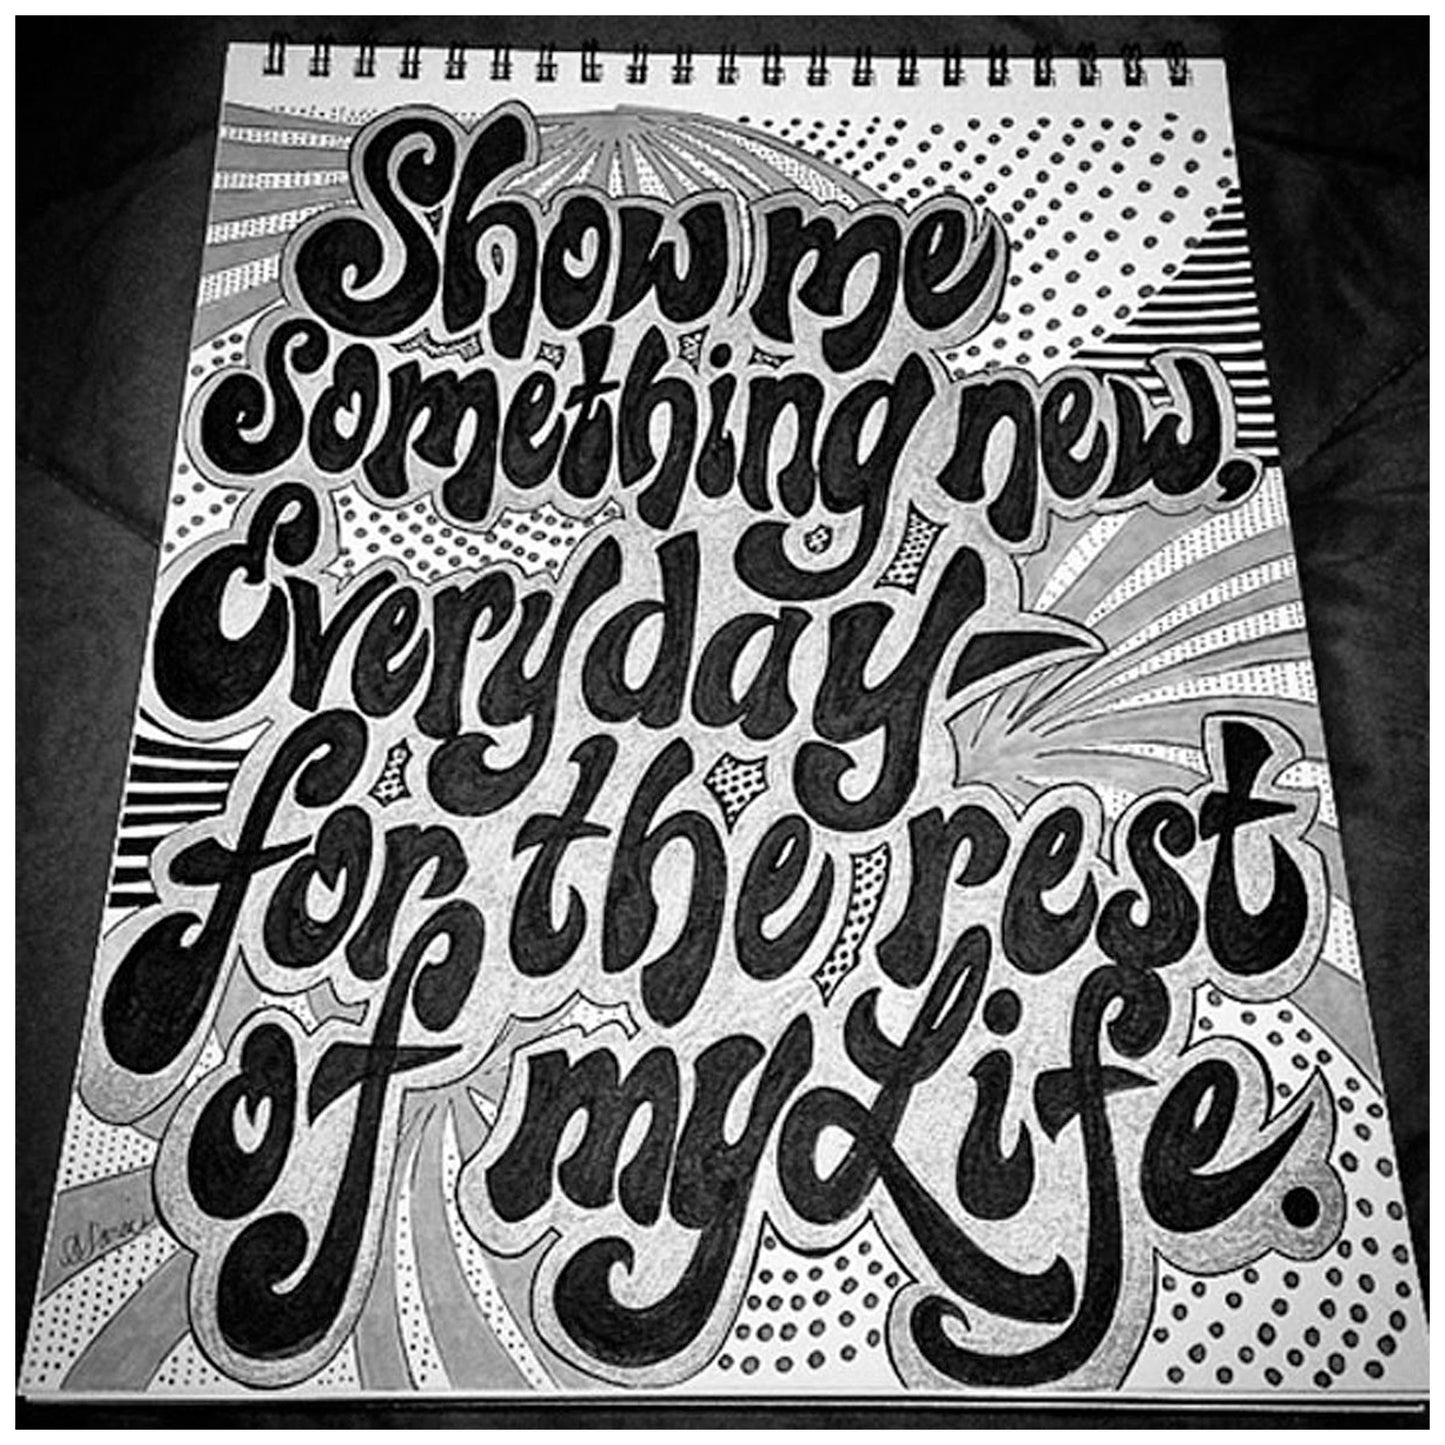 Show me
something new,
Everyday
for the rest
of my Life.